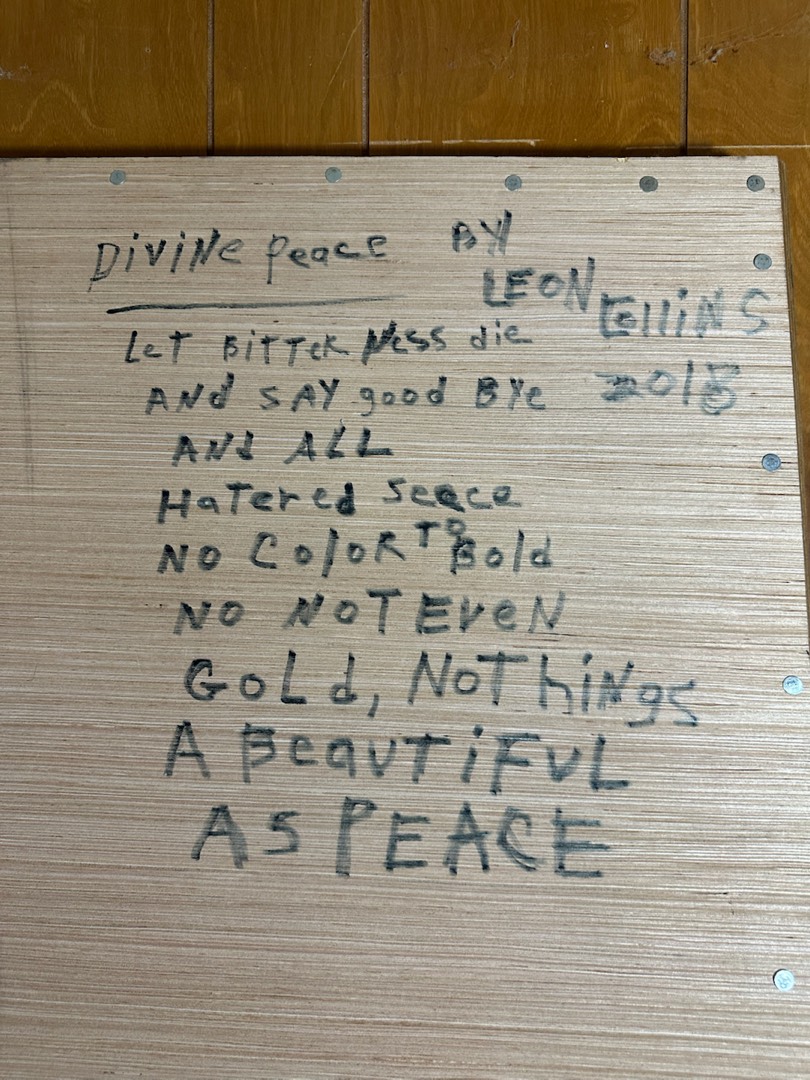 DiViNe Peace BY
LEON COlliNS
2018
LeT BiTTeR Ness die
ANd SAY good BYe
ANd ALL
HaTered Seace
NO ColoR TO Bold
NO NOT EveN
GoLd, NoThiNgs
A BeauTiFuL
AS PEACE